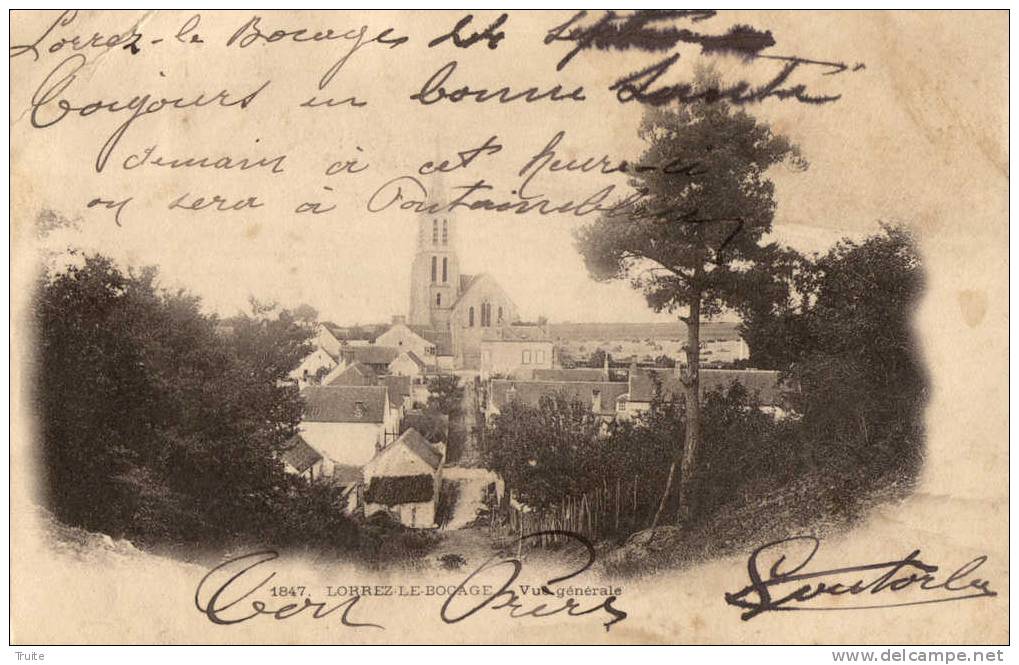 Lorrez-le Bocage le Septem
Toujours en bonne Santé
demain à cet heure-ci
on sera à Fontainebleau
1847. LORREZ-LE-BOCAGE - Vue générale
Ton Père
Truite
www.delcampe.net